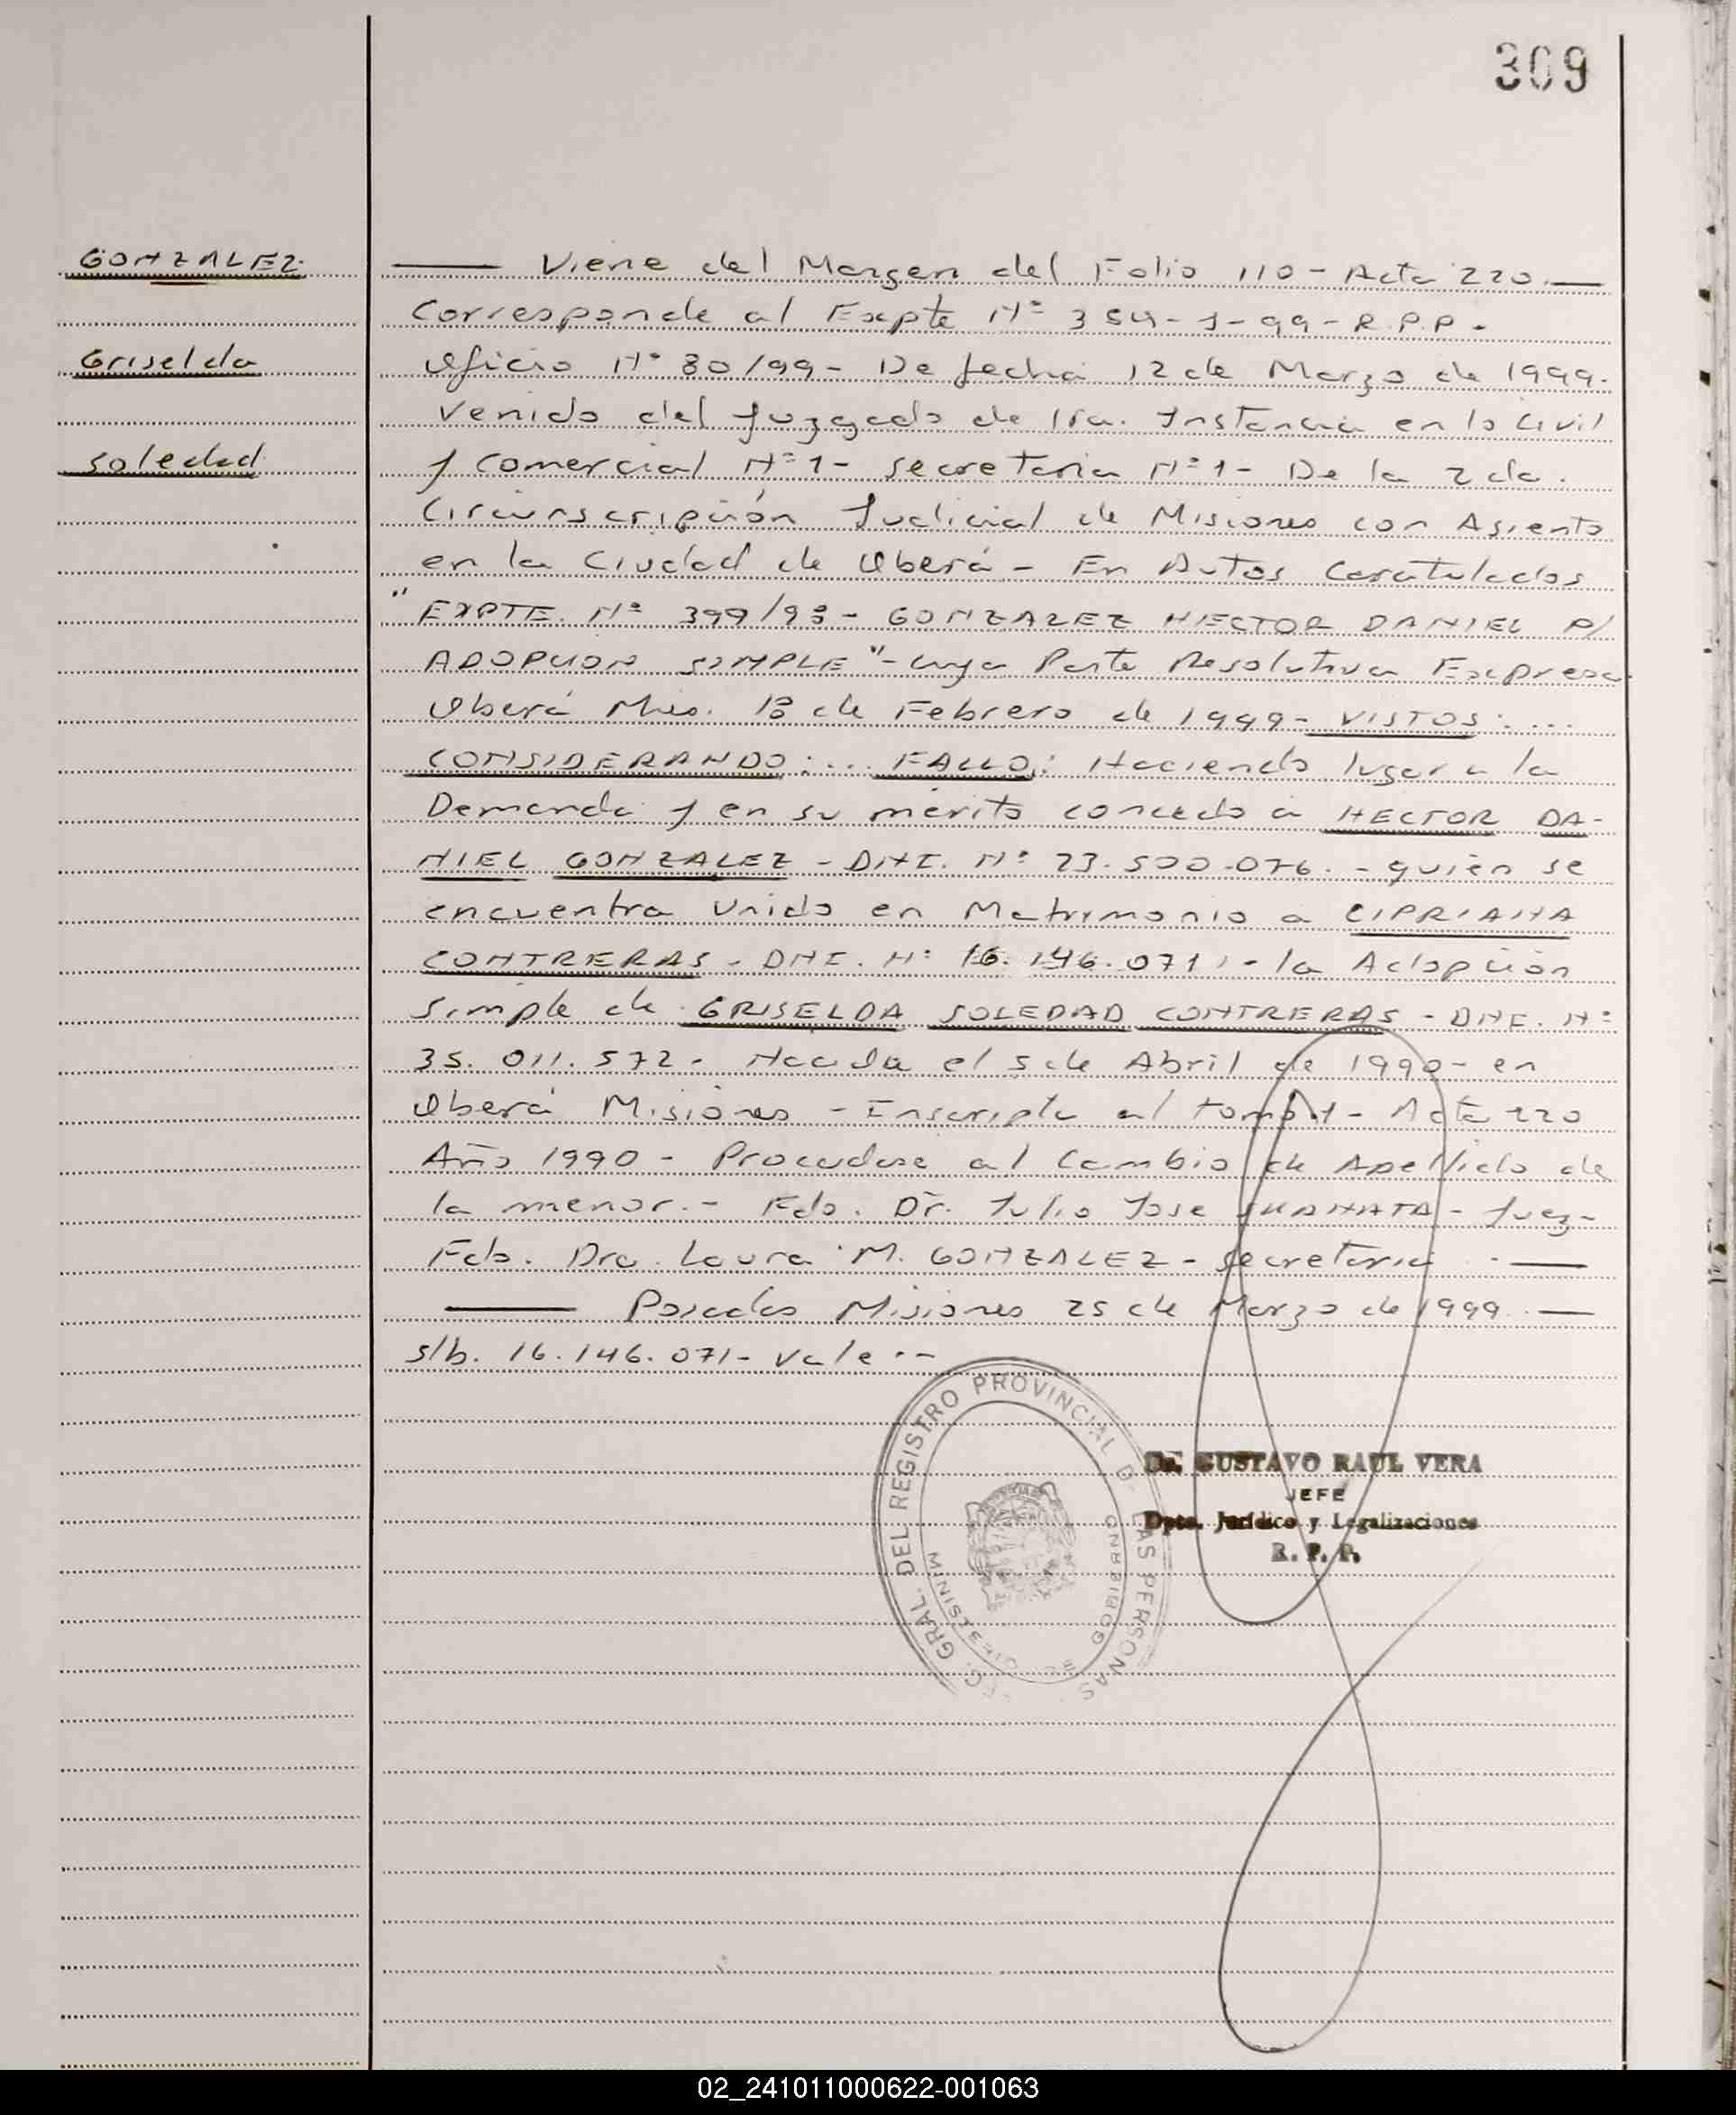 309
GONZALEZ
Griselda
Soledad
—— Viene del Margen del Folio 110 - Acta 220.—
Corresponde al Expte Nº 354-J-99- R.P.P.-
Oficio Nº 80/99- De fecha 12 de Marzo de 1999.
Venido del Juzgado de 1ra. Instancia en lo Civil
y Comercial Nº1- Secretaria Nº1- De la 2da.
Circunscripción Judicial de Misiones con Asiento
en la Ciudad de Oberá - En Autos Caratulados
"EXPTE. Nº 399/98- GONZALEZ HECTOR DANIEL P/
ADOPCION SIMPLE"- cuya Parte Resolutiva Expresa
Oberá Mnes. 18 de Febrero de 1999- VISTOS:...
CONSIDERANDO:... FALLO: Haciendo lugar a la
Demanda y en su mérito concedo a HECTOR DA-
NIEL GONZALEZ - DNI. Nº 23.500.076. - quién se
encuentra Unido en Matrimonio a CIPRIANA
CONTRERAS - DNI. Nº 16.146.071.- la Adopción
Simple de GRISELDA SOLEDAD CONTRERAS - DNI. Nº
35.011.572- Nacida el 5 de Abril de 1990- en
Oberá Misiones - Inscripta al tomo 1- Acta 220
Año 1990 - Procedase al Cambio de Apellido de
la menor.- Fdo. Dr. Julio Jose - Juez-
Fdo. Dra. Laura M. GONZALEZ - Secretaria . ——
—— Posadas Misiones 25 de Marzo de 1999. —
s/b. 16.146.071- Vale.-
GRAL. DEL REGISTRO PROVINCIAL DE LAS PERSONAS
Dr. GUSTAVO RAUL VERA
JEFE
Dpto. Jurídico y Legalizaciones
R. P. P.
02_241011000622-001063